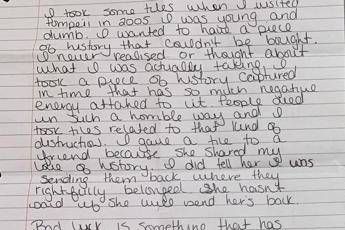 I took some tiles when I visited
Pompeii in 2005. I was young and
dumb. I wanted to have a piece
of history that couldn't be bought.
I never realised or thought about
what I was actually taking. I
took a piece of history captured
in time that has so much negative
energy attached to it. People died
in such a horrible way and I
took tiles related to that kind of
distruction. I gave a tile to a
friend because she shared my
love of history. I did tell her I was
sending them back where they
rightfully belonged. She hasn't
said if she will send her's back.
Bad luck is something that has